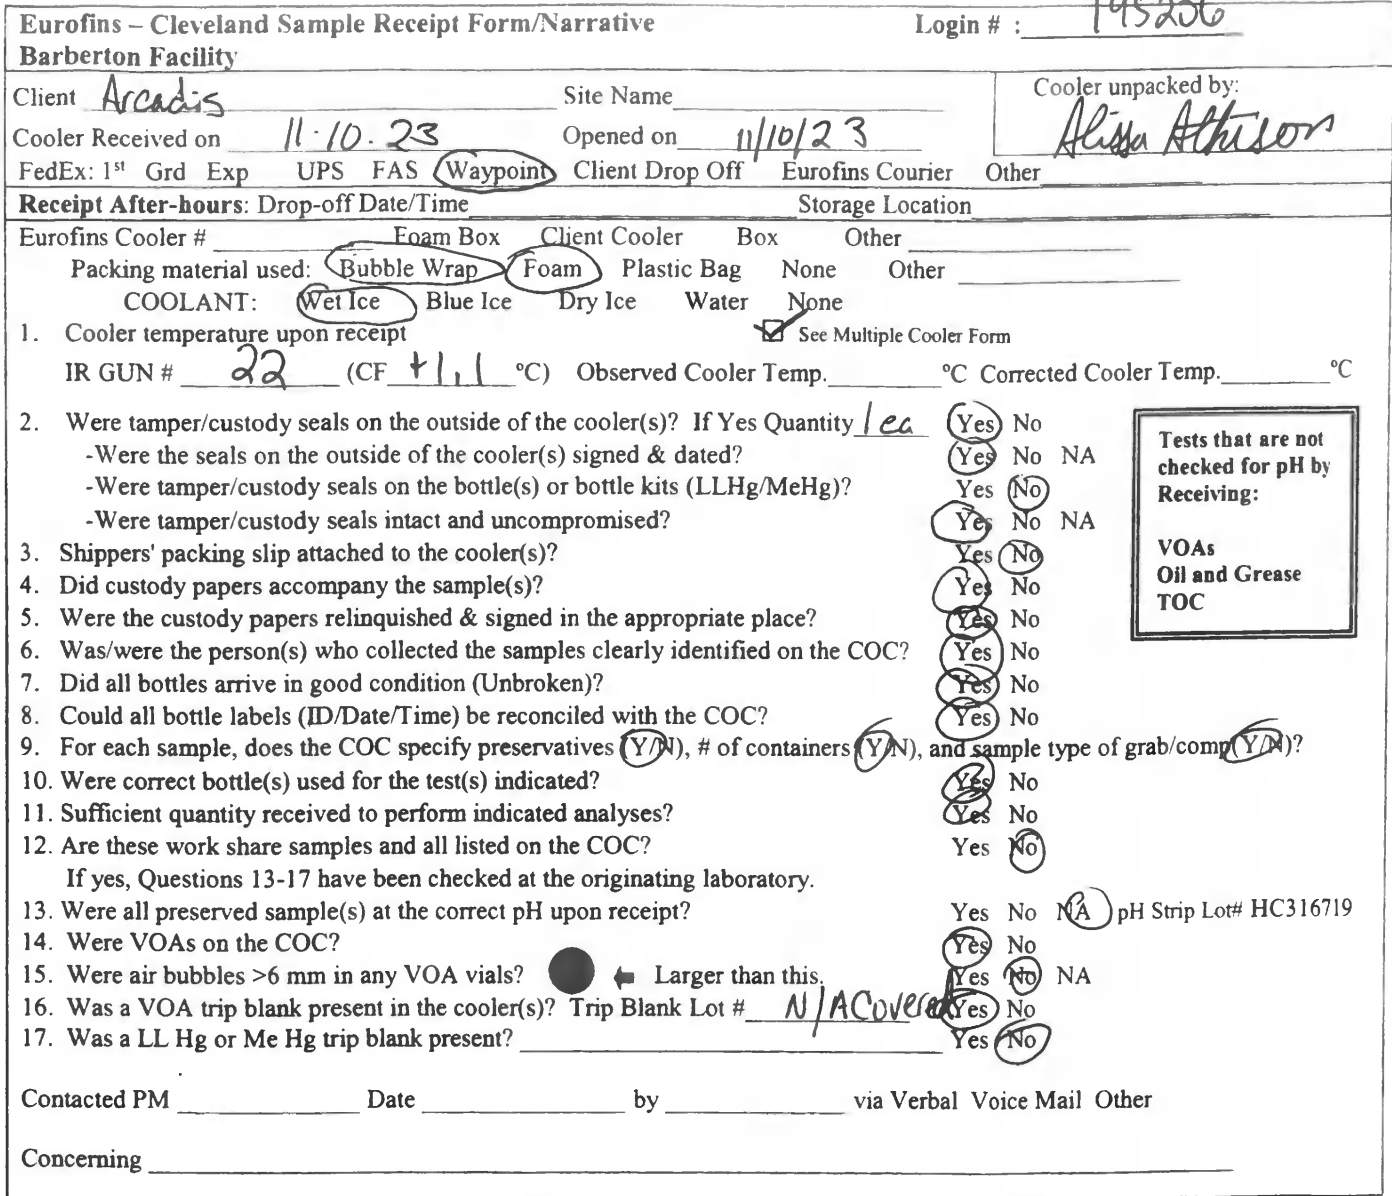 Eurofins – Cleveland Sample Receipt Form/Narrative Login # : 195206
Barberton Facility
Client Arcadis Site Name Cooler unpacked by:
Cooler Received on 11.10.23 Opened on 11/10/23 Alissa Athison
FedEx: 1st Grd Exp UPS FAS Waypoint Client Drop Off Eurofins Courier Other
Receipt After-hours: Drop-off Date/Time Storage Location
Eurofins Cooler # Foam Box Client Cooler Box Other
Packing material used: Bubble Wrap Foam Plastic Bag None Other
COOLANT: Wet Ice Blue Ice Dry Ice Water None
1. Cooler temperature upon receipt See Multiple Cooler Form
IR GUN # 22 (CF +1.1 °C) Observed Cooler Temp. °C Corrected Cooler Temp. °C
2. Were tamper/custody seals on the outside of the cooler(s)? If Yes Quantity 1 ea Yes No
-Were the seals on the outside of the cooler(s) signed & dated? Yes No NA
-Were tamper/custody seals on the bottle(s) or bottle kits (LLHg/MeHg)? Yes No
-Were tamper/custody seals intact and uncompromised? Yes No NA
Tests that are not
checked for pH by
Receiving:
VOAs
Oil and Grease
TOC
3. Shippers' packing slip attached to the cooler(s)? Yes No
4. Did custody papers accompany the sample(s)? Yes No
5. Were the custody papers relinquished & signed in the appropriate place? Yes No
6. Was/were the person(s) who collected the samples clearly identified on the COC? Yes No
7. Did all bottles arrive in good condition (Unbroken)? Yes No
8. Could all bottle labels (ID/Date/Time) be reconciled with the COC? Yes No
9. For each sample, does the COC specify preservatives (Y/N), # of containers (Y/N), and sample type of grab/comp(Y/N)?
10. Were correct bottle(s) used for the test(s) indicated? Yes No
11. Sufficient quantity received to perform indicated analyses? Yes No
12. Are these work share samples and all listed on the COC? Yes No
If yes, Questions 13-17 have been checked at the originating laboratory.
13. Were all preserved sample(s) at the correct pH upon receipt? Yes No NA pH Strip Lot# HC316719
14. Were VOAs on the COC? Yes No
15. Were air bubbles >6 mm in any VOA vials? Larger than this. Yes No NA
16. Was a VOA trip blank present in the cooler(s)? Trip Blank Lot # N/A Covered Yes No
17. Was a LL Hg or Me Hg trip blank present? Yes No
Contacted PM Date by via Verbal Voice Mail Other
Concerning